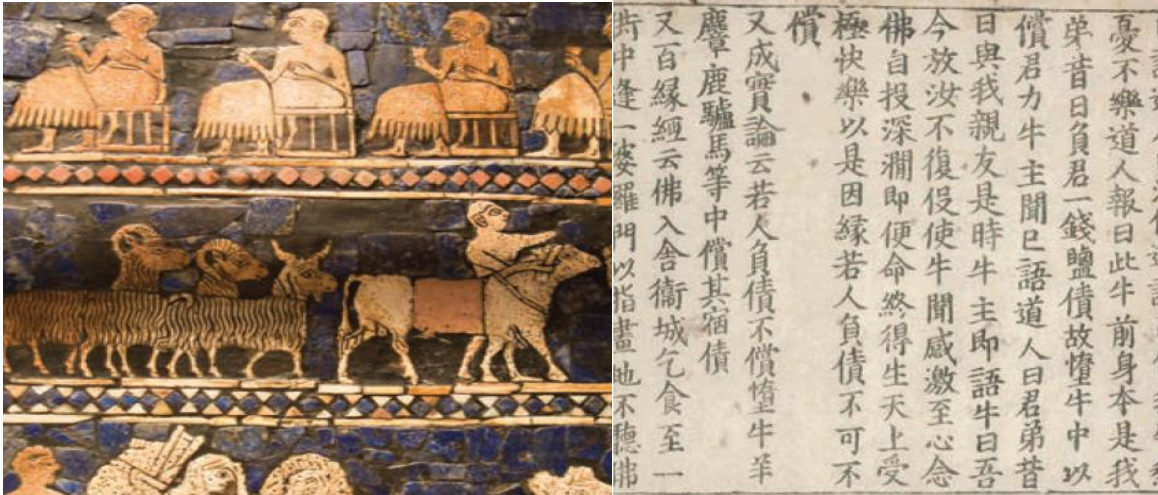 憂不樂道人報曰此牛前身本是我
弟昔日負君一錢鹽債故墮牛中以
償君力牛主聞已語道人曰君弟昔
日與我親友是時牛主即語牛曰吾
今放汝不復役使牛聞感激至心念
佛自投深澗即便命終得生天上受
極快樂以是因緣若人負債不可不
償
又成實論云若人負債不償墮牛羊
麞鹿驢馬等中償其宿債
又百緣經云佛入舍衛城乞食至一
街中逢一婆羅門以指畫地不聽佛